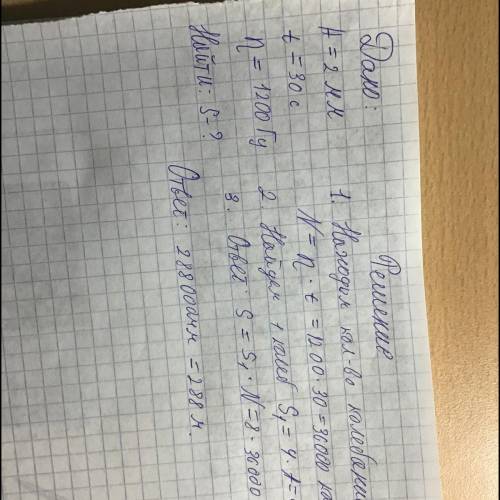 Дано:
A = 2 мм
t = 30 с
n = 1200 Гц
Найти: S - ?
Решение
1. Находим кол-во колебани
N = n · t = 1200 · 30 = 36000 ко
2. Найдем 1 колеб S₁ = 4 · A =
3. Ответ S = S₁ · N = 8 · 36000
Ответ: 288000 мм = 288 м.